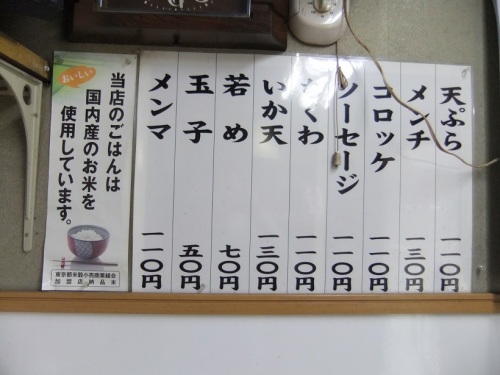 天ぷら 一一〇円
メンチ 一三〇円
コロッケ 一一〇円
ソーセージ 一一〇円
ちくわ 一一〇円
いか天 一三〇円
若め 七〇円
玉子 五〇円
メンマ 一一〇円
おいしい
当店のごはんは
国内産のお米を
使用しています。
東京都米穀小売商業組合
加盟店納品米